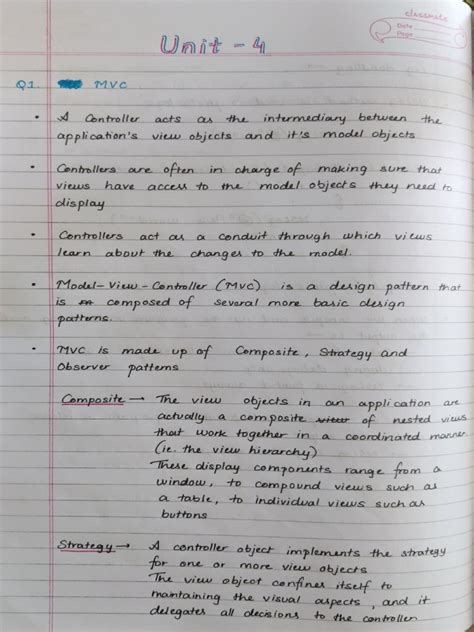 classmate
Date
Page
Unit - 4
Q1. MVC
• A Controller acts as the intermediary between the
application's view objects and it's model objects
• Controllers are often in charge of making sure that
views have access to the model objects they need to
display
• Controllers act as a conduit through which views
learn about the changes to the model.
• Model-View-Controller (MVC) is a design pattern that
is composed of several more basic design
patterns.
• MVC is made up of Composite, Strategy and
Observer patterns
Composite → The view objects in an application are
actually a composite view of nested views
that work together in a coordinated manner
(ie. the view hierarchy)
These display components range from a
window, to compound views such as
a table, to individual views such as
buttons
Strategy → A controller object implements the strategy
for one or more view objects
The view object confines itself to
maintaining the visual aspects, and it
delegates all decisions to the controller